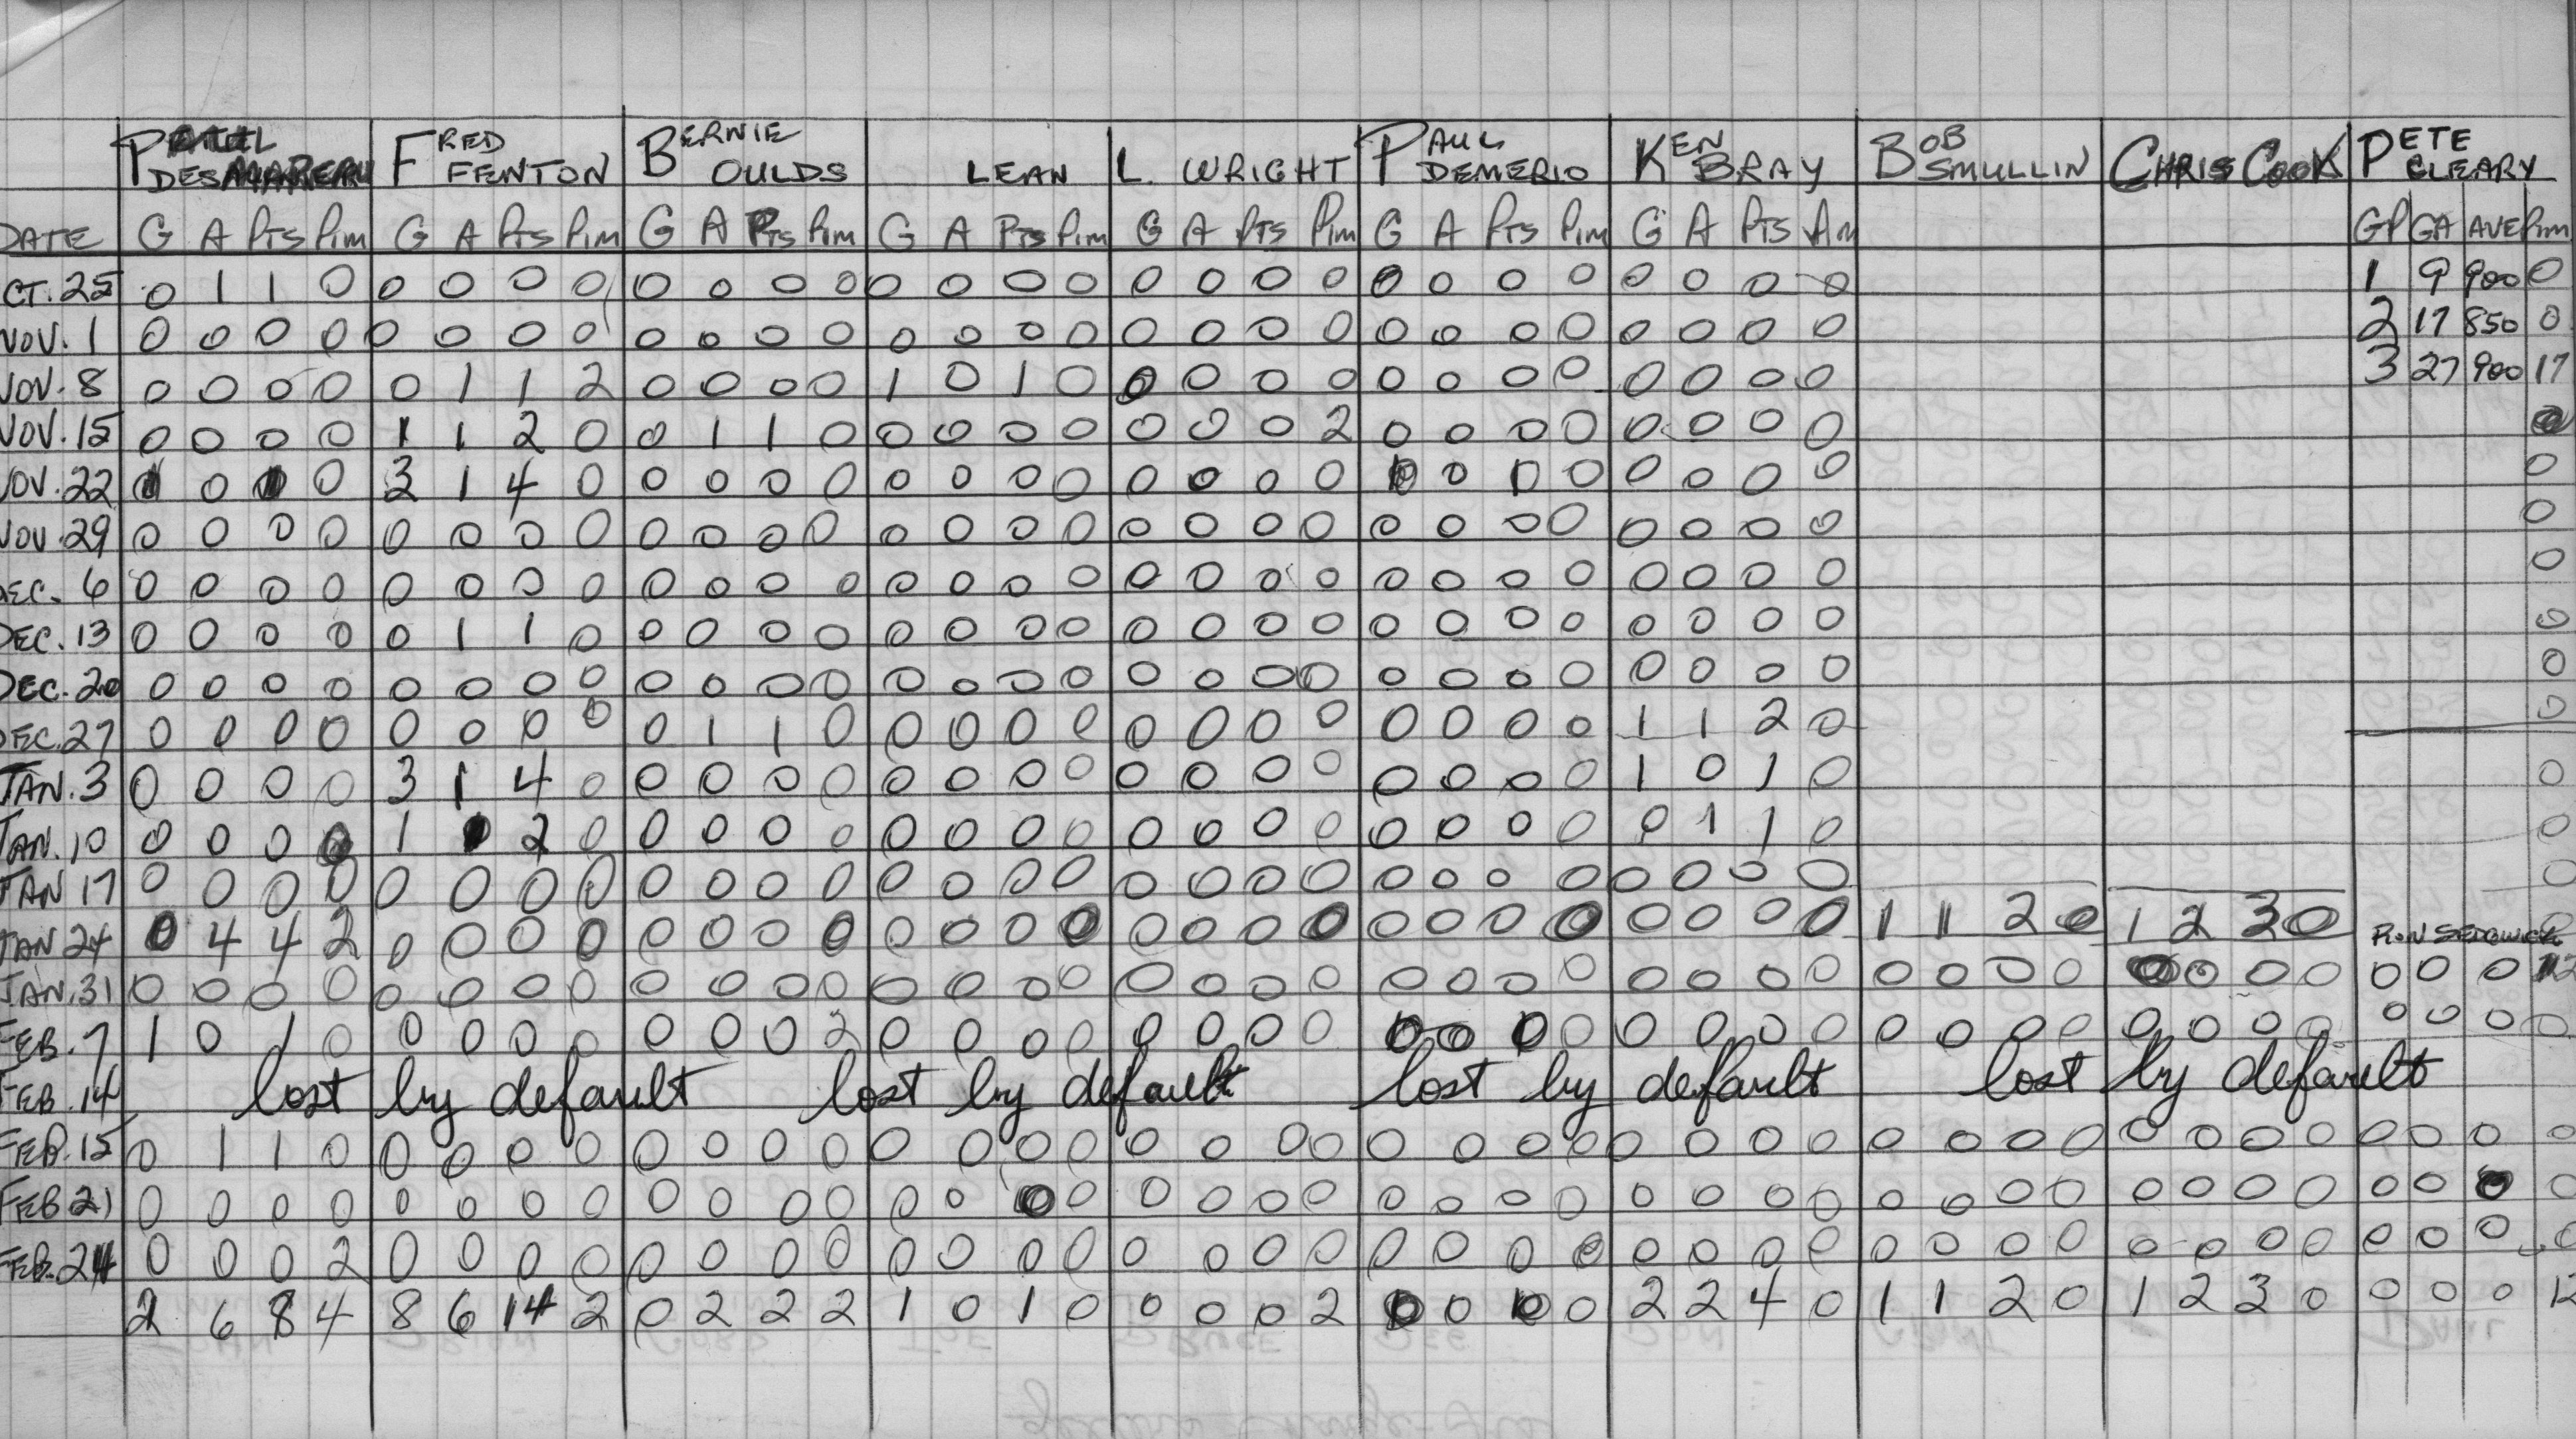 FRED BERNIE PAUL KEN BOB PETE
FENTON OULDS LEAN L. WRIGHT DEMERIO BRAY SMULLIN CHRIS COOK CLEARY
DATE G A Pts Pim G A Pts Pim G A Pts Pim G A Pts Pim G A Pts Pim G A Pts Pim G A Pts Pim GP GA AVE Pim
CT. 25 0 1 1 0 0 0 0 0 0 0 0 0 0 0 0 0 0 0 0 0 0 0 0 0 0 0 0 0 1 9 900 0
NOV. 1 0 0 0 0 0 0 0 0 0 0 0 0 0 0 0 0 0 0 0 0 0 0 0 0 0 0 0 0 2 17 850 0
NOV. 8 0 0 0 0 0 1 1 2 0 0 0 0 1 0 1 0 0 0 0 0 0 0 0 0 0 0 0 0 3 27 900 17
NOV. 15 0 0 0 0 1 1 2 0 0 1 1 0 0 0 0 0 0 0 0 2 0 0 0 0 0 0 0 0
NOV. 22 0 0 3 1 4 0 0 0 0 0 0 0 0 0 0 0 0 0 0 0 0 0 0 0 0 0
NOV. 29 0 0 0 0 0 0 0 0 0 0 0 0 0 0 0 0 0 0 0 0 0 0 0 0 0 0 0 0 0
DEC. 6 0 0 0 0 0 0 0 0 0 0 0 0 0 0 0 0 0 0 0 0 0 0 0 0 0 0 0 0 0
DEC. 13 0 0 0 0 0 1 1 0 0 0 0 0 0 0 0 0 0 0 0 0 0 0 0 0 0 0 0 0 0
DEC. 20 0 0 0 0 0 0 0 0 0 0 0 0 0 0 0 0 0 0 0 0 0 0 0 0 0 0 0 0 0
DEC. 27 0 0 0 0 0 0 0 0 0 1 1 0 0 0 0 0 0 0 0 0 0 0 0 0 1 1 2 0 0
JAN. 3 0 0 0 0 3 1 4 0 0 0 0 0 0 0 0 0 0 0 0 0 0 0 0 0 1 0 1 0 0
JAN. 10 0 0 0 0 1 2 0 0 0 0 0 0 0 0 0 0 0 0 0 0 0 0 0 0 1 1 0 0
JAN 17 0 0 0 0 0 0 0 0 0 0 0 0 0 0 0 0 0 0 0 0 0 0 0 0 0 0 0 0 0
JAN 24 0 4 4 2 0 0 0 0 0 0 0 0 0 0 0 0 0 0 0 0 0 0 0 0 0 0 0 0 1 1 2 0 1 2 3 0 RON SEDGWICK 0
JAN. 31 0 0 0 0 0 0 0 0 0 0 0 0 0 0 0 0 0 0 0 0 0 0 0 0 0 0 0 0 0 0 0 0 0 0 0 0 0 0 0 12
FEB. 7 1 0 1 0 0 0 0 0 0 0 0 2 0 0 0 0 0 0 0 0 0 0 0 0 0 0 0 0 0 0 0 0 0 0 0 0 0 0 0 0
FEB. 14 lost by default lost by default lost by default lost by default
FEB. 15 0 1 1 0 0 0 0 0 0 0 0 0 0 0 0 0 0 0 0 0 0 0 0 0 0 0 0 0 0 0 0 0 0 0 0 0 0 0 0 0
FEB 21 0 0 0 0 0 0 0 0 0 0 0 0 0 0 0 0 0 0 0 0 0 0 0 0 0 0 0 0 0 0 0 0 0 0 0 0 0 0 0 0
FEB. 24 0 0 0 2 0 0 0 0 0 0 0 0 0 0 0 0 0 0 0 0 0 0 0 0 0 0 0 0 0 0 0 0 0 0 0 0 0 0 0 0
2 6 8 4 8 6 14 2 0 2 2 2 1 0 1 0 0 0 0 2 0 0 2 2 4 0 1 1 2 0 1 2 3 0 0 0 0 12